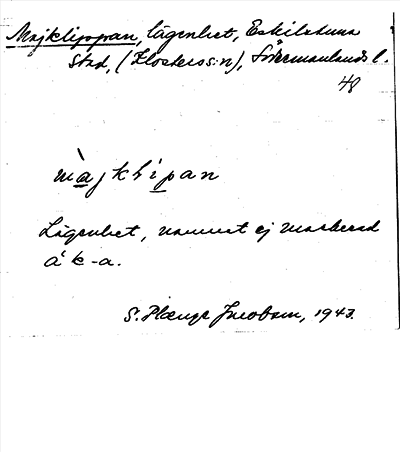 Majklippan, lägenhet, Eskilstuna
stad, (Klosters s:n), Södermanlands l.
48
màjklìpan
Lägenhet, namnet ej markerad
å k-a.
S. Plænge Jacobson, 1943.